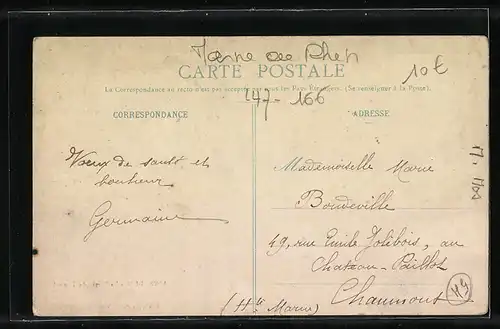 10€
CARTE POSTALE
La Correspondance au recto n'est pas acceptée par tous les Pays Étrangers. (Se renseigner à la Poste).
147-166
CORRESPONDANCE
ADRESSE
Vœux de santé et
bonheur
Germaine
Mademoiselle Marie
Boudeville
49, rue Emile Jolibois, au
Chateau-Paillot
Chaumont
(Hte Marne)
49